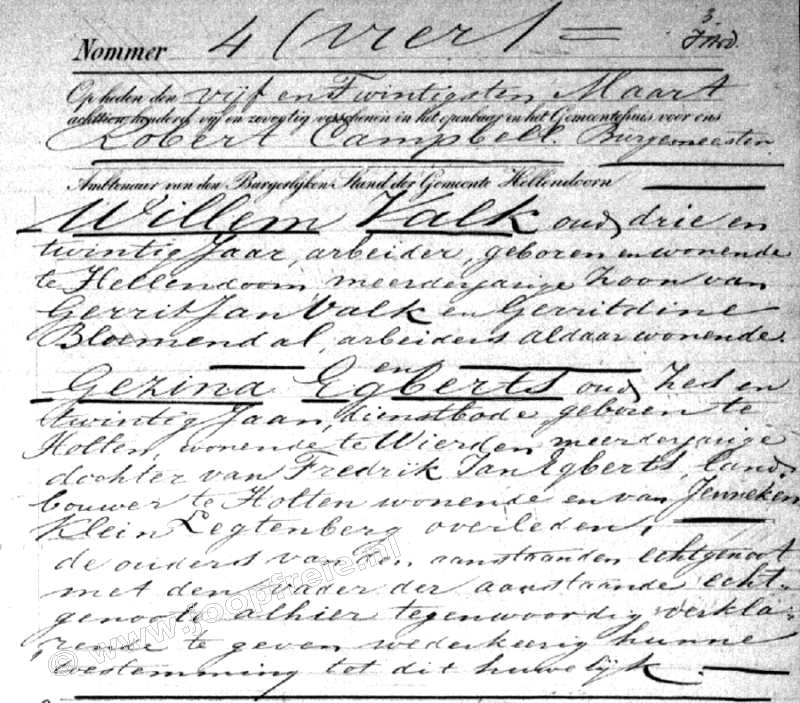 Nommer 4 (vier) =
Op heden den vijf en Twintigsten Maart
achttien honderd vijf en zeventig verschenen in het openbaar in het Gemeentehuis voor ons
Robert Campbell. Burgemeester.
Ambtenaar van den Burgerlijken Stand der Gemeente Hellendoorn
Willem Valk oud drie en
twintig Jaar, arbeider, geboren en wonende
te Hellendoorn meerderjarige Zoon van
Gerrit Jan Valk en Gerritdine
Bloemendal, arbeiders aldaar wonende.
en
Gezina Egberts oud Zes en
twintig Jaar, dienstbode geboren te
Holten, wonende te Wierden meerderjarige
dochter van Fredrik Jan Egberts, land-
bouwer te Holten wonende en van Jenneken
Klein Legtenberg overleden,
de ouders van den aanstaanden echtgenoot
met den vader der aanstaande echt-
genoote alhier tegenwoordig verkla-
rende te geven wederkeerig hunne
toestemming tot dit huwelijk.
© www.joopfrele.nl